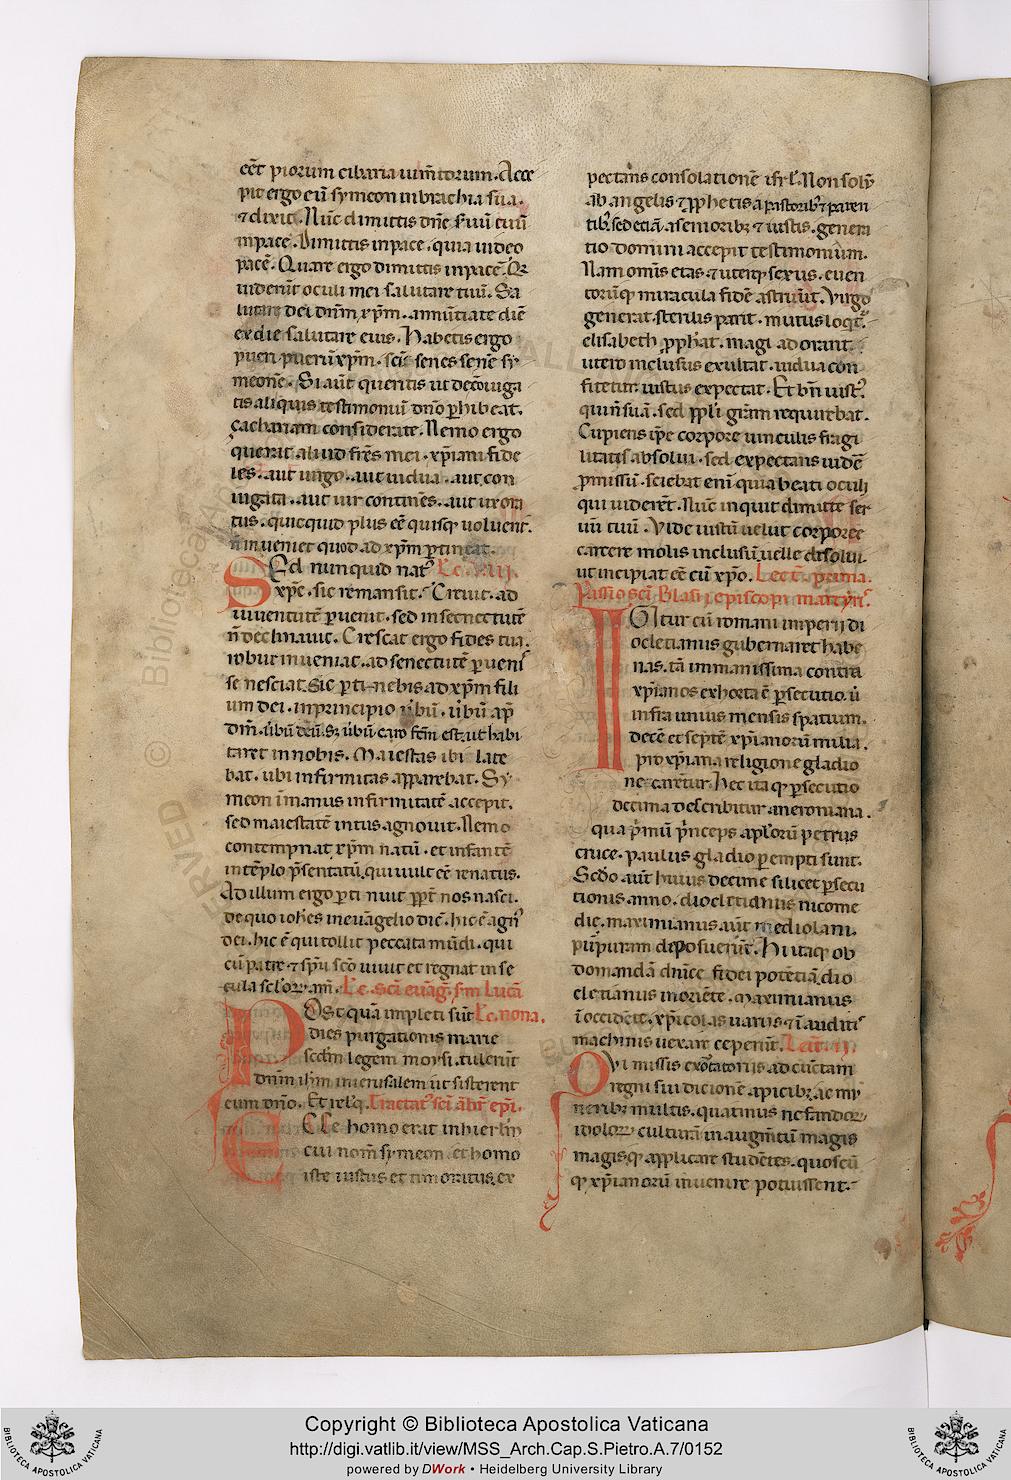 eēt piorum cibaria uim̄torum. Acce
pit ergo eū symeon in brachia sua.
⁊ dixit. Nūc dimittis dn̄e s̄uū tuū
in pace. Dimittis in pace. quia uideo
pacē. Quare ergo dimittis in pacē. Qr̄
uider̄t oculi mei salutare tuū. Sa
lutare dei dn̄m xp̄m. annūtiate diē
ex die salutare eius. Habetis ergo
pueri puerū xp̄m. sc̄i senes senē sy
meonē. Si aūt queritis ut de cōiuga
tis aliquis testimoniū dn̄o ꝑhibeat.
çachariam considerate. Nemo ergo
querat aliud fr̄es mei. xp̄iani fide
les. aut uirgo. aut uidua. aut con
iugata. aut uir continēs. aut uxora
tus. quicquid plus eē quisq; uoluerit.
n̄ inueniet quod ad xp̄m ꝑtineat.
SEd nunquid natꝰ Lc̄. viij.
xp̄c. sic remansit. Creuit. ad
iuuentutē ꝑuenit. sed in senectutē
n̄ declinauit. Crescat ergo fides tua.
robur inueniat. ad senectutē ꝑueni
re nesciat. Sic ꝑtinebis ad xp̄m fili
um dei. in principio u̇bū. u̇bū ap̄
dm̄. u̇bū deū. Sꝫ u̇bū caro fc̄m est. ut habi
taret in nobis. Maiestas ibi late
bat. ubi infirmitas apparebat. Sy
meon ī manus infirmitatē accepit.
sed maiestatē intus agnouit. Nemo
contempnat xp̄m natū. et infantē
in tēplo p̄sentatū. qui uult eē renatus.
Ad illum ergo ꝑtinuit ꝓpt̄ nos nasci.
de quo ioh̄es in euāgelio diē. hic ē agnꝰ
dei. hic ē qui tollit peccata mūdi. qui
cū patre ⁊ sp̄u sc̄o uiuit et regnat in se
cula sc̄lor̄. am̄. Lc̄. sc̄i euāg̃. s̄m Lucā
POSt quā impleti sūt Lc̄. nona.
dies purgationis marie
scd̄m legem moysi. tulerūt
dn̄m ih̄m in ierusalem ut sisterent
eum dn̄o. Et rel̄q. Tractatꝰ sc̄i āb̄r ep̄i.
ECCe homo erat in hierl̄m
cui nom̄ symeon. et homo
iste iustus et timoratus. ex
pectans consolationē isr̄l. Non solū
ab angelis ⁊ ꝓphetis a pastoribꝰ ⁊ paren
tibꝰ. sed etiā. a senioribꝫ ⁊ iustis. genera
tio domini accepit testimonium.
Nam omīs etas. ⁊ uterq; sexus. euen
torūq; miracula fidē astruūt. Virgo
generat. sterilis parit. mutus loqt̄.
elisabeth ꝓph̄at. magi adorant.
utero inclusus exultat. uidua con
fitetur. iustus expectat. Et bn̄ iustꝰ.
qui n̄ suā. sed ppl̄i gr̄am requirebat.
Cupiens ip̄e corpore uinculis fragi
litatis absolui. sed expectans uidē
ꝓmissū. sciebat enī quia beati oculi
qui uider̄t. Nūc inquit dimitte ser
uū tuū. Vide iustū uelut corporee
carcere molis inclusū uelle dissolui.
ut incipiat eē cū xp̄o. Lect̄. prima.
Passio sc̄i Blasij episcopi martyr̄.
IGItur cū romani imperij di
ocletianus gubernaret habe
nas. tā immanissima contra
xp̄ianos exhorta ē ꝑsecutio. ū
infra unius mensis spatium.
decē et septē xp̄ianorū milia.
pro xp̄iana religione gladio
necarētur. Hec itaq; ꝑsecutio
decima describitur. a neroniana.
qua p̄mū p̄nceps apl̄orū petrus
cruce. paulus gladio ꝑempti sunt.
Scdo aūt huius decime silicet ꝑsecu
tionis. anno. diocletianus nicome
die. maximianus. aūt mediolani.
purpuram deposuerūt. Hi itaq; ob
domandā dn̄ice fidei potētiā. dio
cletianus in oriēte. maximianus
ī occidēte. xp̄icolas uariis ⁊ ī auditis
machinis uexare ceperūt. Lect̄. ij.
QVi missis exortatoriis. ad cūctam
regni sui dicionē. apicibꝫ. ac mu
neribꝫ multis. quatinus nefandoꝝ
idoloꝝ culturā in augm̄tū magis
magisq; applicare studētes. quoscū
q; xp̄ianorū inuenire potuissent.